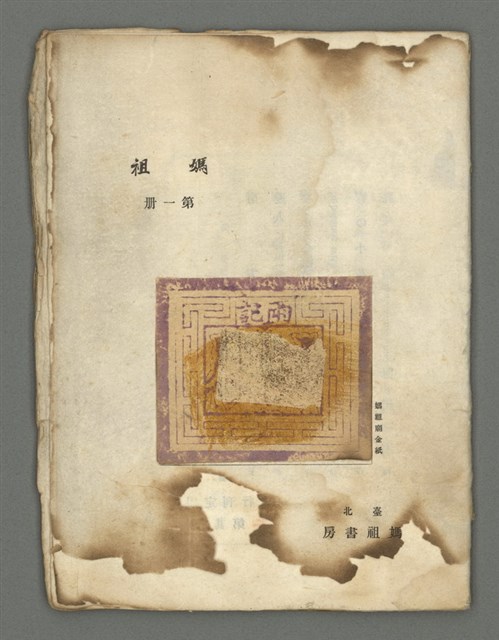 媽祖
第一册
雨記
媽祖廟金紙
臺北
媽祖書房